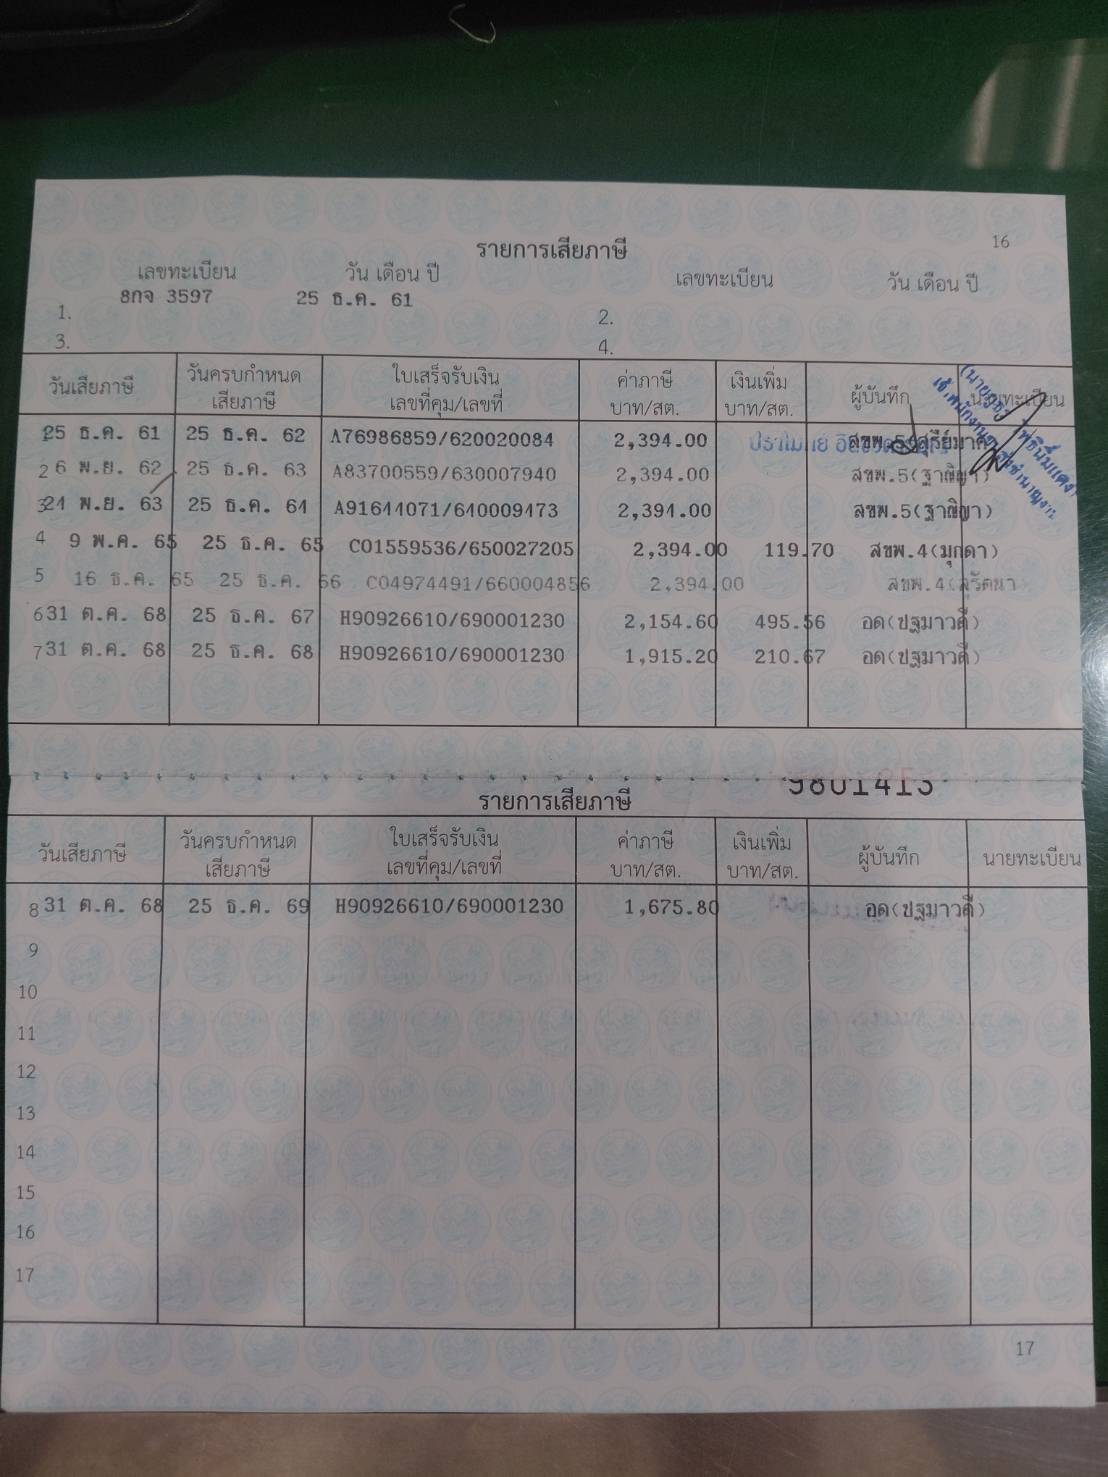 16
รายการเสียภาษี
เลขทะเบียน วัน เดือน ปี เลขทะเบียน วัน เดือน ปี
1. 8กจ 3597 25 ธ.ค. 61 2.
3. 4.
วันเสียภาษี วันครบกำหนดเสียภาษี ใบเสร็จรับเงิน เลขที่คุม/เลขที่ ค่าภาษี บาท/สต. เงินเพิ่ม บาท/สต. ผู้บันทึก นายทะเบียน
25 ธ.ค. 61 25 ธ.ค. 62 A76986859/620020084 2,394.00 สขพ.5
2 6 พ.ย. 62 25 ธ.ค. 63 A83700559/630007940 2,394.00 สขพ.5(ฐาณิญา)
3 24 พ.ย. 63 25 ธ.ค. 64 A91644071/640009473 2,394.00 สขพ.5(ฐาณิญา)
4 9 พ.ค. 65 25 ธ.ค. 65 C01559536/650027205 2,394.00 119.70 สขพ.4(มุกดา)
5 16 ธ.ค. 65 25 ธ.ค. 66 C04974491/660004856 2,394.00 สขพ.4(สุรัตนา
6 31 ต.ค. 68 25 ธ.ค. 67 H90926610/690001230 2,154.60 495.56 อด(ปฐมาวดี)
7 31 ต.ค. 68 25 ธ.ค. 68 H90926610/690001230 1,915.20 210.67 อด(ปฐมาวดี)
9801413
รายการเสียภาษี
วันเสียภาษี วันครบกำหนดเสียภาษี ใบเสร็จรับเงิน เลขที่คุม/เลขที่ ค่าภาษี บาท/สต. เงินเพิ่ม บาท/สต. ผู้บันทึก นายทะเบียน
8 31 ต.ค. 68 25 ธ.ค. 69 H90926610/690001230 1,675.80 อด(ปฐมาวดี)
9
10
11
12
13
14
15
16
17
17